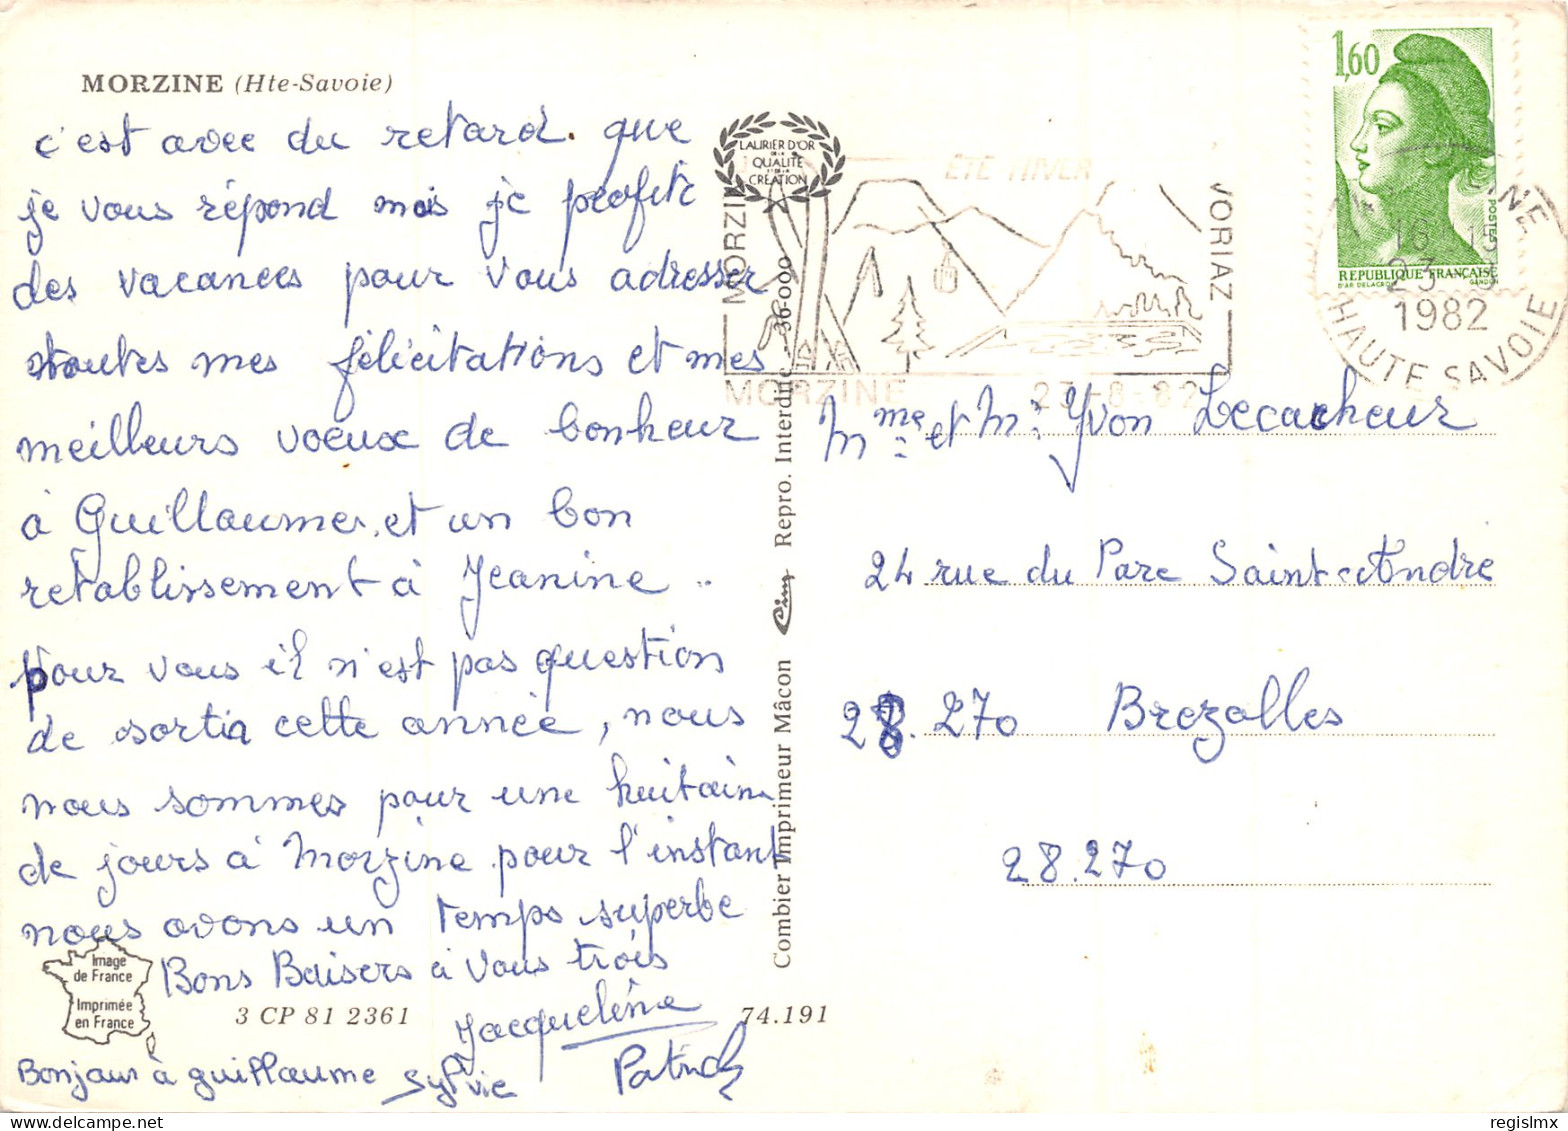 MORZINE (Hte-Savoie)
c'est avec du retard. que
je vous répond mais je profite
des vacances pour vous adresser
toutes mes félicitations et mes
meilleurs voeux de bonheur
à Guillaume, et un bon
retablissement à Jeanine ..
pour vous il n'est pas question
de sortir cette année, nous
nous sommes pour une huitaine
de jours à Morzine pour l'instant
nous avons un temps superbe
Bons Baisers à vous trois
Jacqueline
Patrick
Sylvie
Bonjour à guillaume
Image
de France
Imprimée
en France
3 CP 81 2361
74.191
Combier Imprimeur Mâcon Cim Repro. Interdite - 36-000
LAURIER D'OR
DE LA
QUALITÉ
ET DE LA
CRÉATION
ÉTÉ HIVER
MORZINE
VORIAZ
MORZINE 23-8-82
1,60
POSTES
REPUBLIQUE FRANÇAISE
D'AP. DELACROIX GANDON
1982
HAUTE SAVOIE
Mme et Mr Yvon Lecacheur
24 rue du Parc Saint-Andre
28.270 Brezolles
28.270
© regislmx